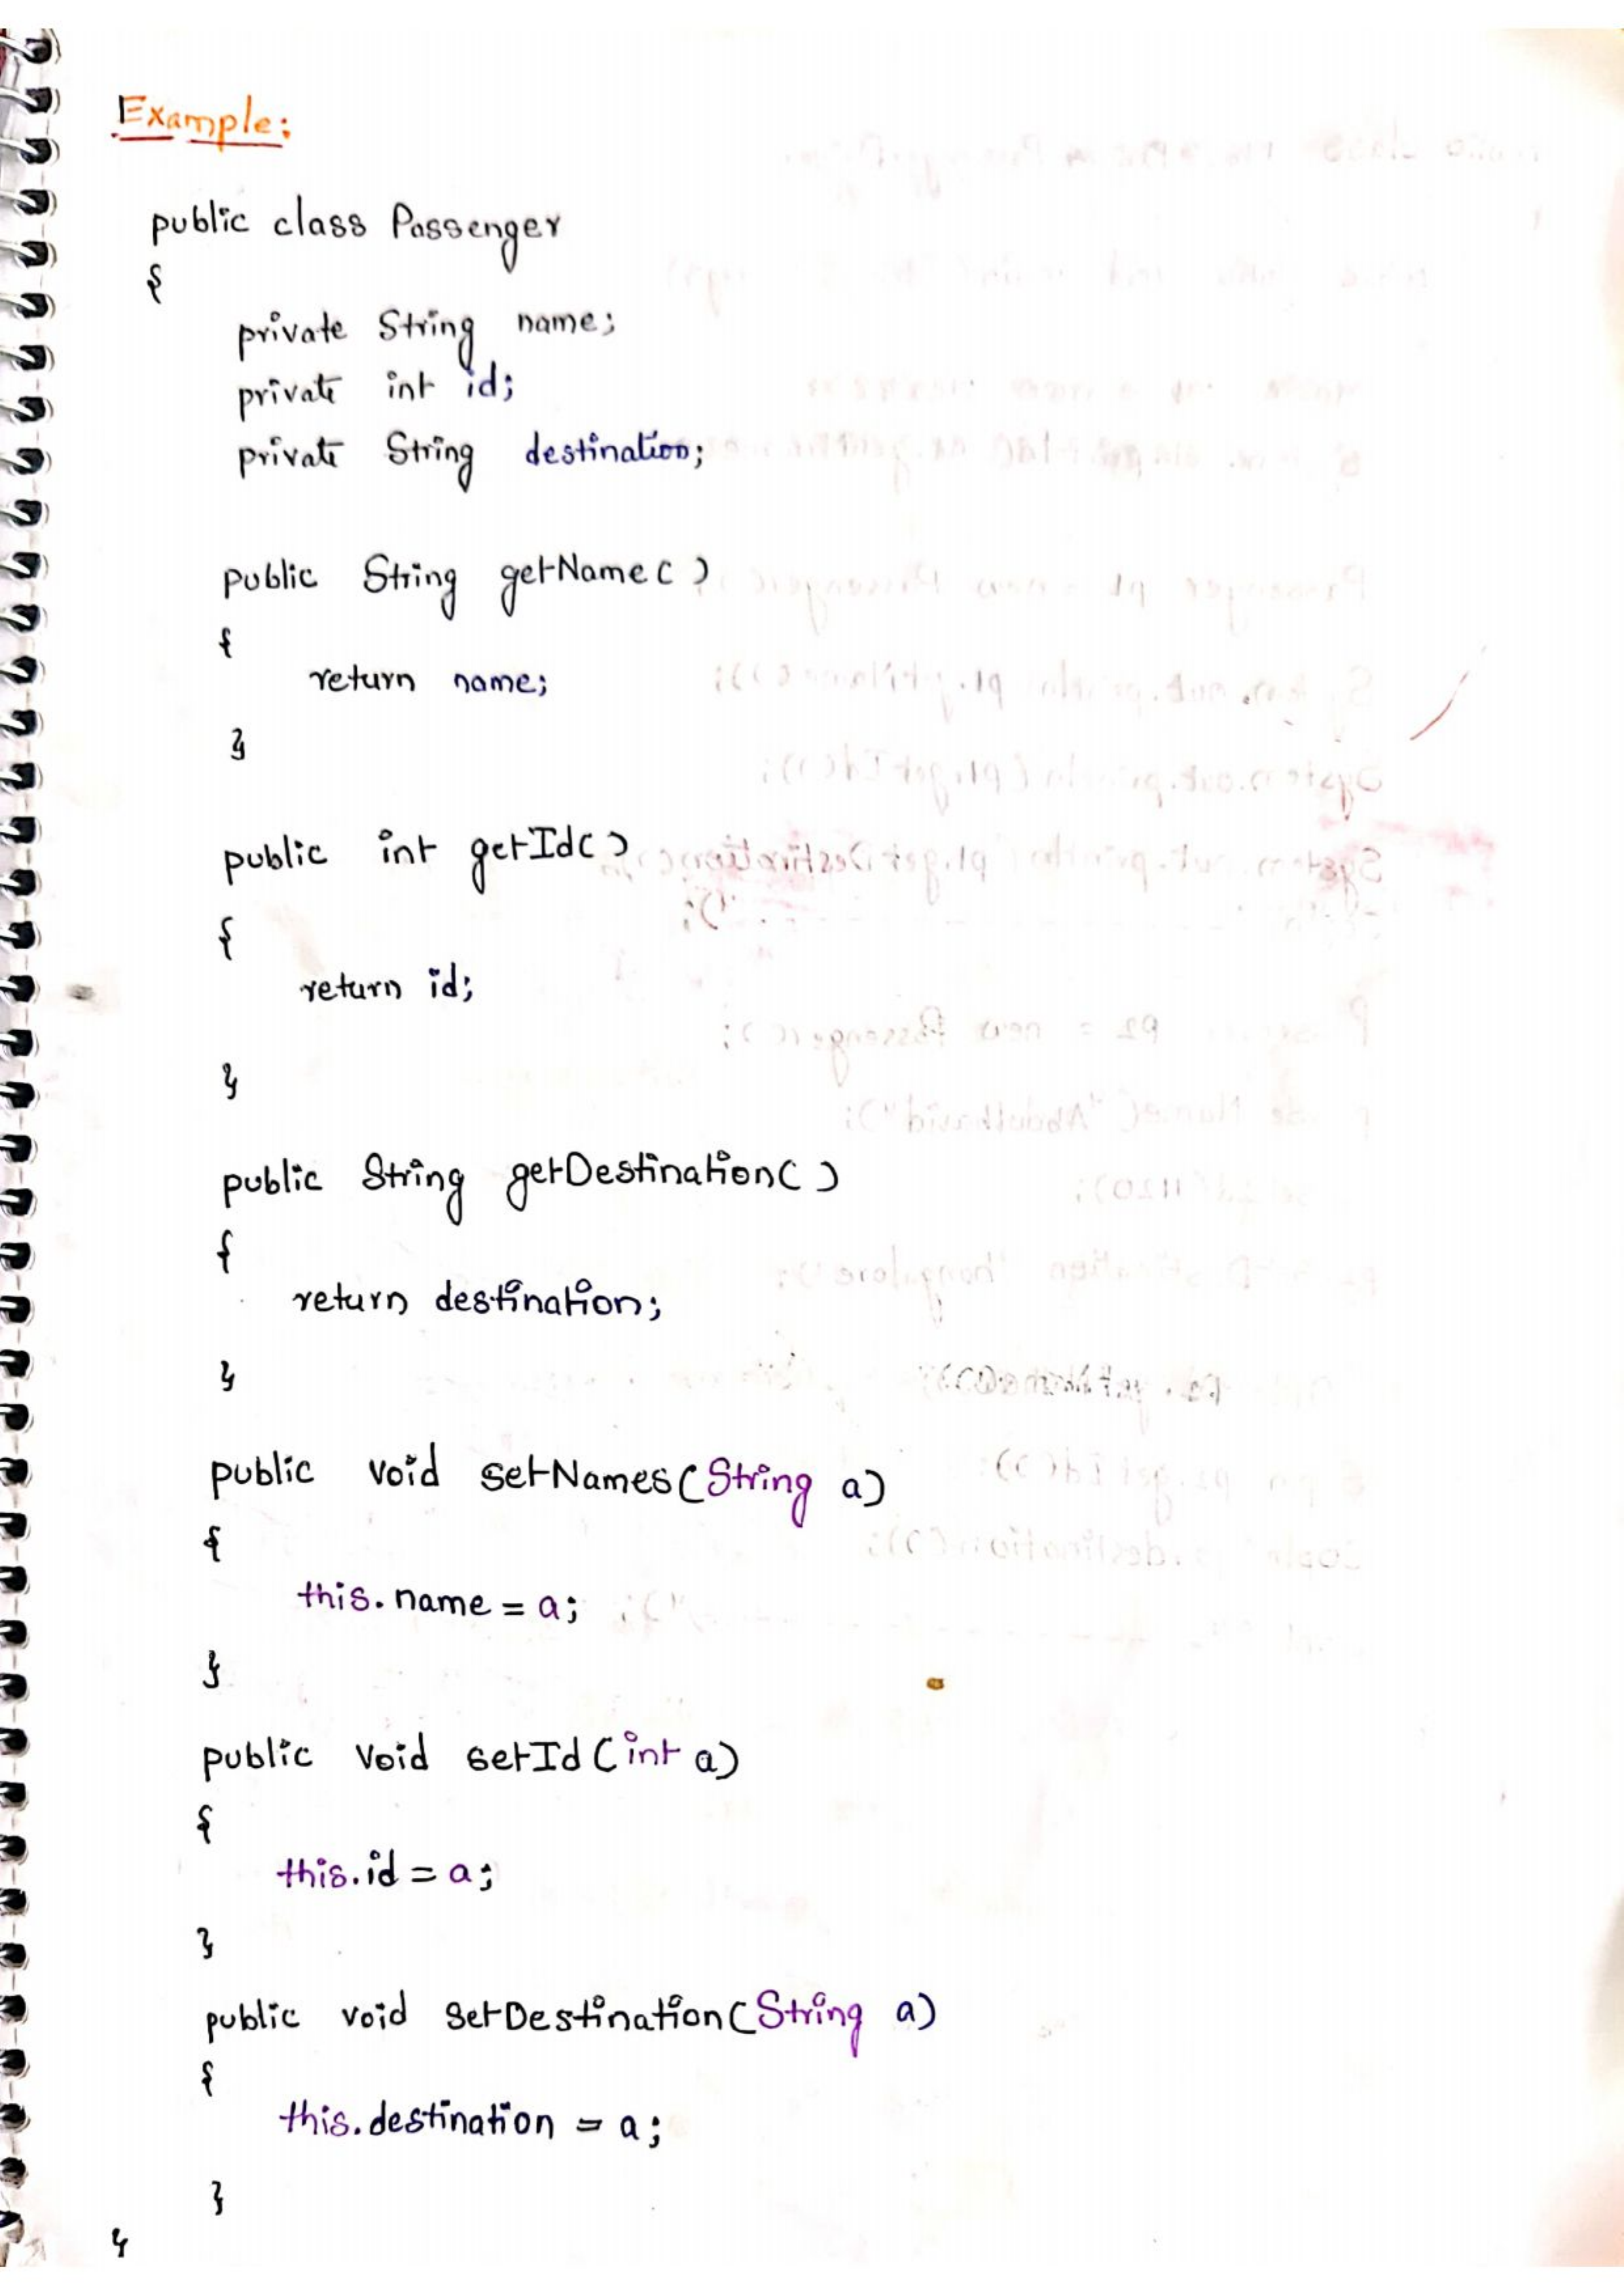 Example:
public class Passenger
{
private String name;
private int id;
private String destination;
public String getName()
{
return name;
}
public int getId()
{
return id;
}
public String getDestination()
{
return destination;
}
public void setNames(String a)
{
this.name = a;
}
public void setId(int a)
{
this.id = a;
}
public void setDestination(String a)
{
this.destination = a;
}
}